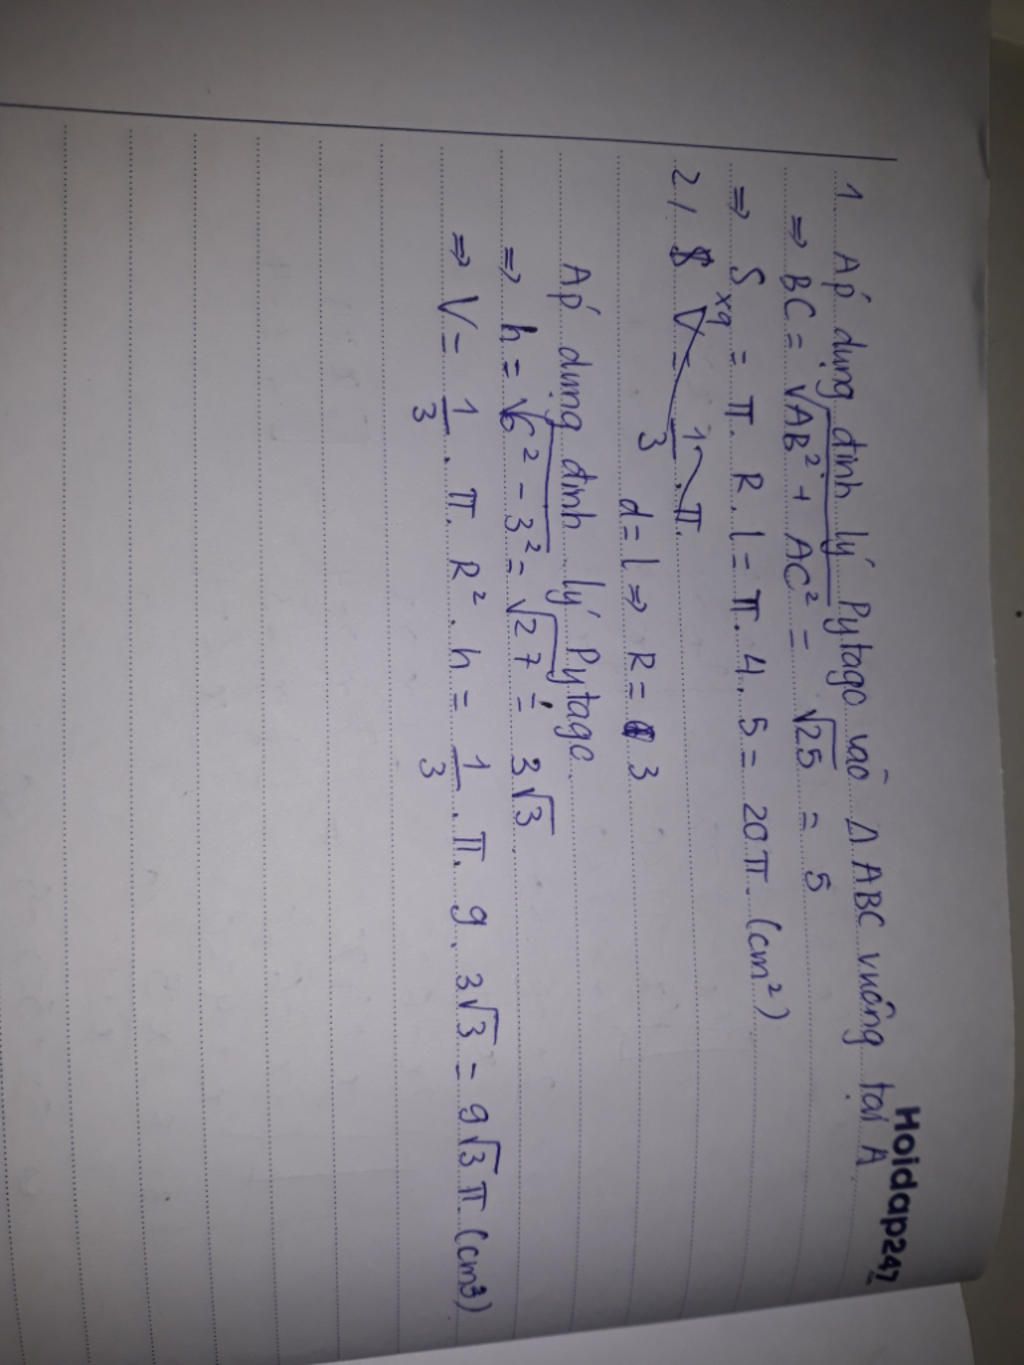 Hoidap247
1 Áp dụng định lý Pytago vào Δ ABC vuông tại A
⇒ BC = √AB² + AC² = √25 = 5
⇒ Sxq = π. R. l = π. 4. 5 = 20π. (cm²)
2/ V = 1/3 . π.
d = l ⇒ R = 3
Áp dụng định lý Pytago.
⇒ h = √6² - 3² = √27 = 3√3
⇒ V = 1/3 . π. R². h = 1/3 . π. 9. 3√3 = 9√3π (cm³)